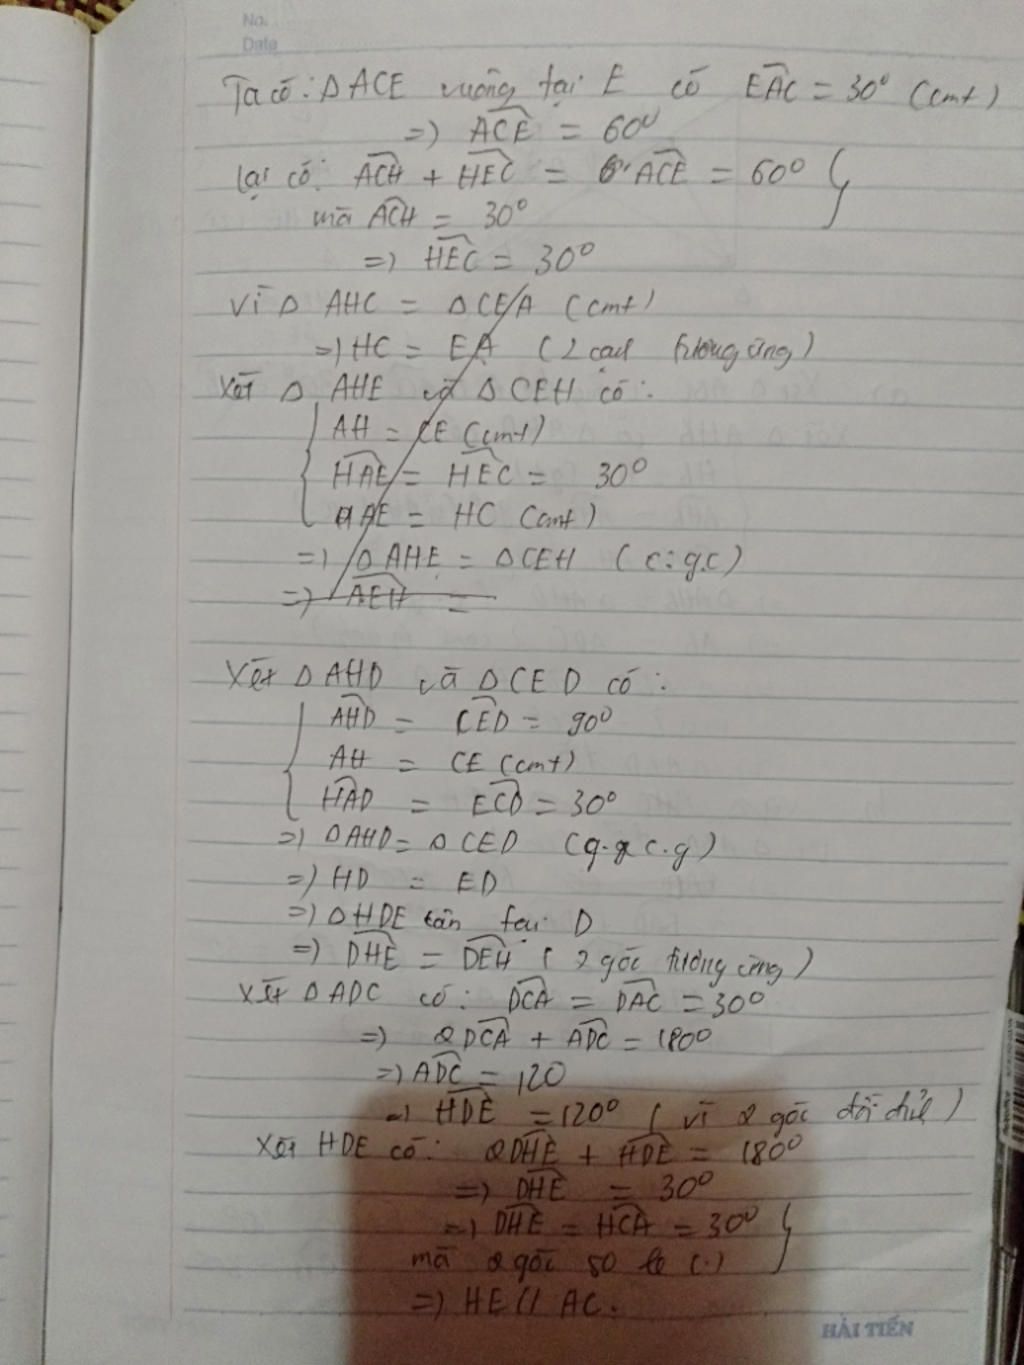 No.
Date
Ta có: Δ ACE vuông tại E có EAC = 30° (cmt)
=> ACE = 60°
lại có: ACH + HEC = ACE = 60° }
mà ACH = 30°
=> HEC = 30°
Vì Δ AHC = Δ CEA (cmt)
=> HC = EA (2 cạnh tương ứng)
Xét Δ AHE và Δ CEH có:
{ AH = CE (cmt)
HAE = HEC = 30°
AE = HC (cmt)
=> Δ AHE = Δ CEH (c.g.c)
=> AEH =
Xét Δ AHD và Δ CED có:
{ AHD = CED = 90°
AH = CE (cmt)
HAD = ECD = 30°
=> Δ AHD = Δ CED (g.c.g)
=> HD = ED
=> Δ HDE cân tại D
=> DHE = DEH (2 góc tương ứng)
Xét Δ ADC có: DCA = DAC = 30°
=> 2DCA + ADC = 180°
=> ADC = 120
=> HDE = 120° (vì 2 góc đối đỉnh)
Xét HDE có: 2DHE + HDE = 180°
=> DHE = 30°
=> DHE = HCA = 30° }
mà 2 góc so le (.)
=> HE // AC.
HẢI TIẾN